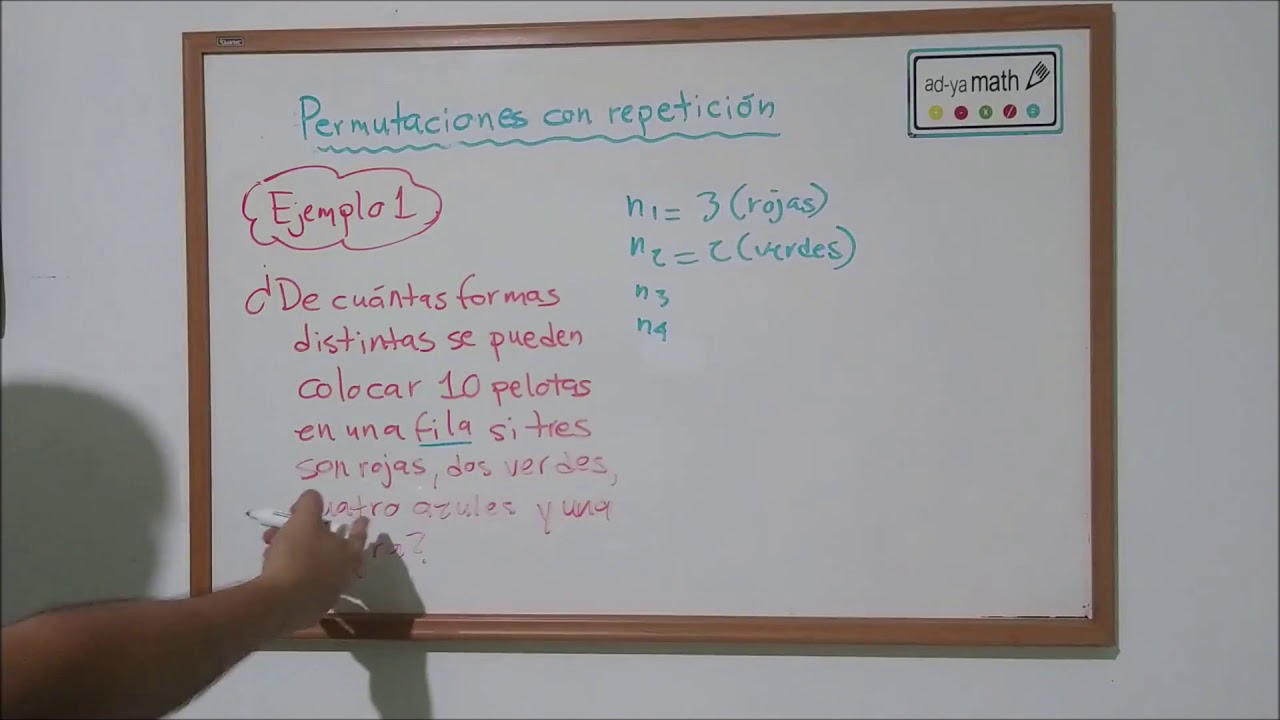 ad-ya math
Permutaciones con repetición
Ejemplo 1
¿De cuántas formas
distintas se pueden
colocar 10 pelotas
en una fila si tres
son rojas, dos verdes,
cuatro azules y una
n1 = 3 (rojas)
n2 = 2 (verdes)
n3
n4